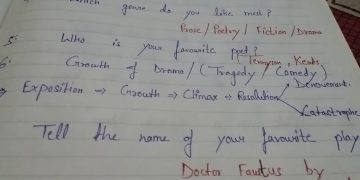 which genre do you like most?
Prose / Poetry / Fiction / Drama
5. Who is your favourite poet?
Tennyson, Keats
6. Growth of Drama / (Tragedy / Comedy)
Exposition → Growth → Climax → Resolution
Denouement.
Catastrophe
Tell the name of your favourite play
Doctor Faustus by